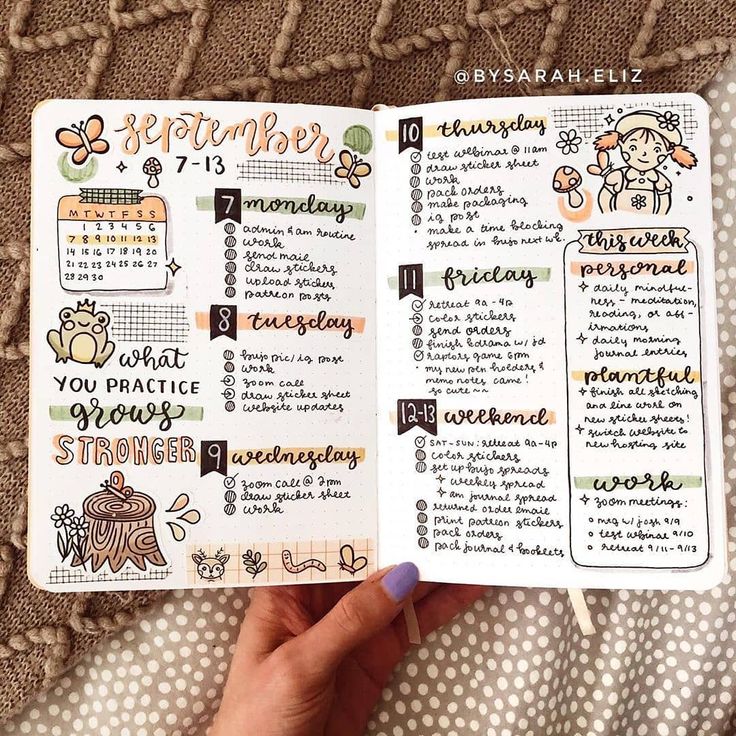 @BYSARAH.ELIZ
september
7-13
M T W T F S S
1 2 3 4 5 6
7 8 9 10 11 12 13
14 15 16 17 18 19 20
21 22 23 24 25 26 27
28 29 30
what
YOU PRACTICE
grows
STRONGER
7 monday
admin & am routine
work
send mail
draw stickers
upload stickers
patreon posts
8 tuesday
bujo pic/ig post
work
zoom call
draw sticker sheet
website updates
9 wednesday
zoom call @ 2pm
draw sticker sheet
work
10 thursday
test webinar @ 11am
draw sticker sheet
work
pack orders
make packaging
ig post
make a time blocking
spread in bujo next wk.
11 friday
retreat 9a-4p
color stickers
send orders
finish kdrama w/ jd
raptors game 6pm
my new pen holders &
memo notes came!
so cute ~~
12-13 weekend
SAT-SUN: retreat 9a-4p
color stickers
set up bujo spreads
weekly spread
am journal spread
returned order email
print patreon stickers
pack orders
pack journal & booklets
this week
personal
daily mindful-
ness - meditation,
reading, or aff-
irmations
daily morning
journal entries
plantful
finish all sketching
and line work on
new sticker sheets!
switch website to
new hosting site
work
zoom meetings:
mtg w/ josh 9/9
test webinar 9/10
retreat 9/11-9/13